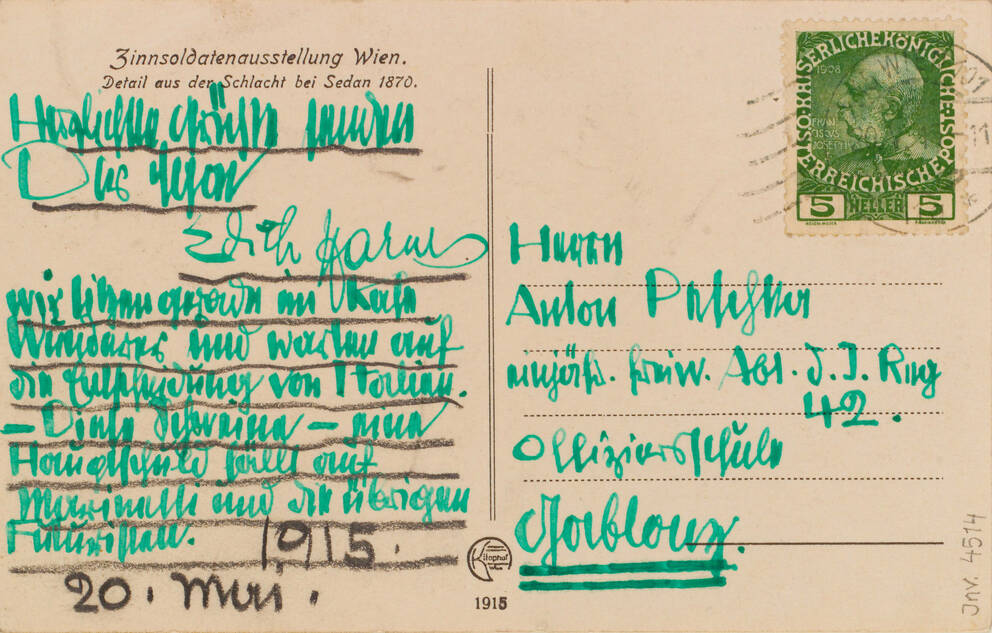 Zinnsoldatenausstellung Wien.
Detail aus der Schlacht bei Sedan 1870.
Herzlichste Grüsse senden
Dir Egon
Edith Harms
wir sitzen gerade im Kafe
und warten auf
die Entscheidung von Italien.
– Diese Schweine – eine
Hauptschuld fällt auf
Marinetti und die übrigen
Futuristen.
1915.
20. Mai.
OESTERREICHISCHE POST
KAISERLICHE KÖNIGLICHE
1908
FRAN
CISCUS
JOSEPH I
5 HELLER 5
Herrn
Anton Peschka
einjähr. freiw. Abt. d. I. Reg
42.
Offiziersschule
Gablonz.
Kilophot
Wien
1915
Inv. 4514